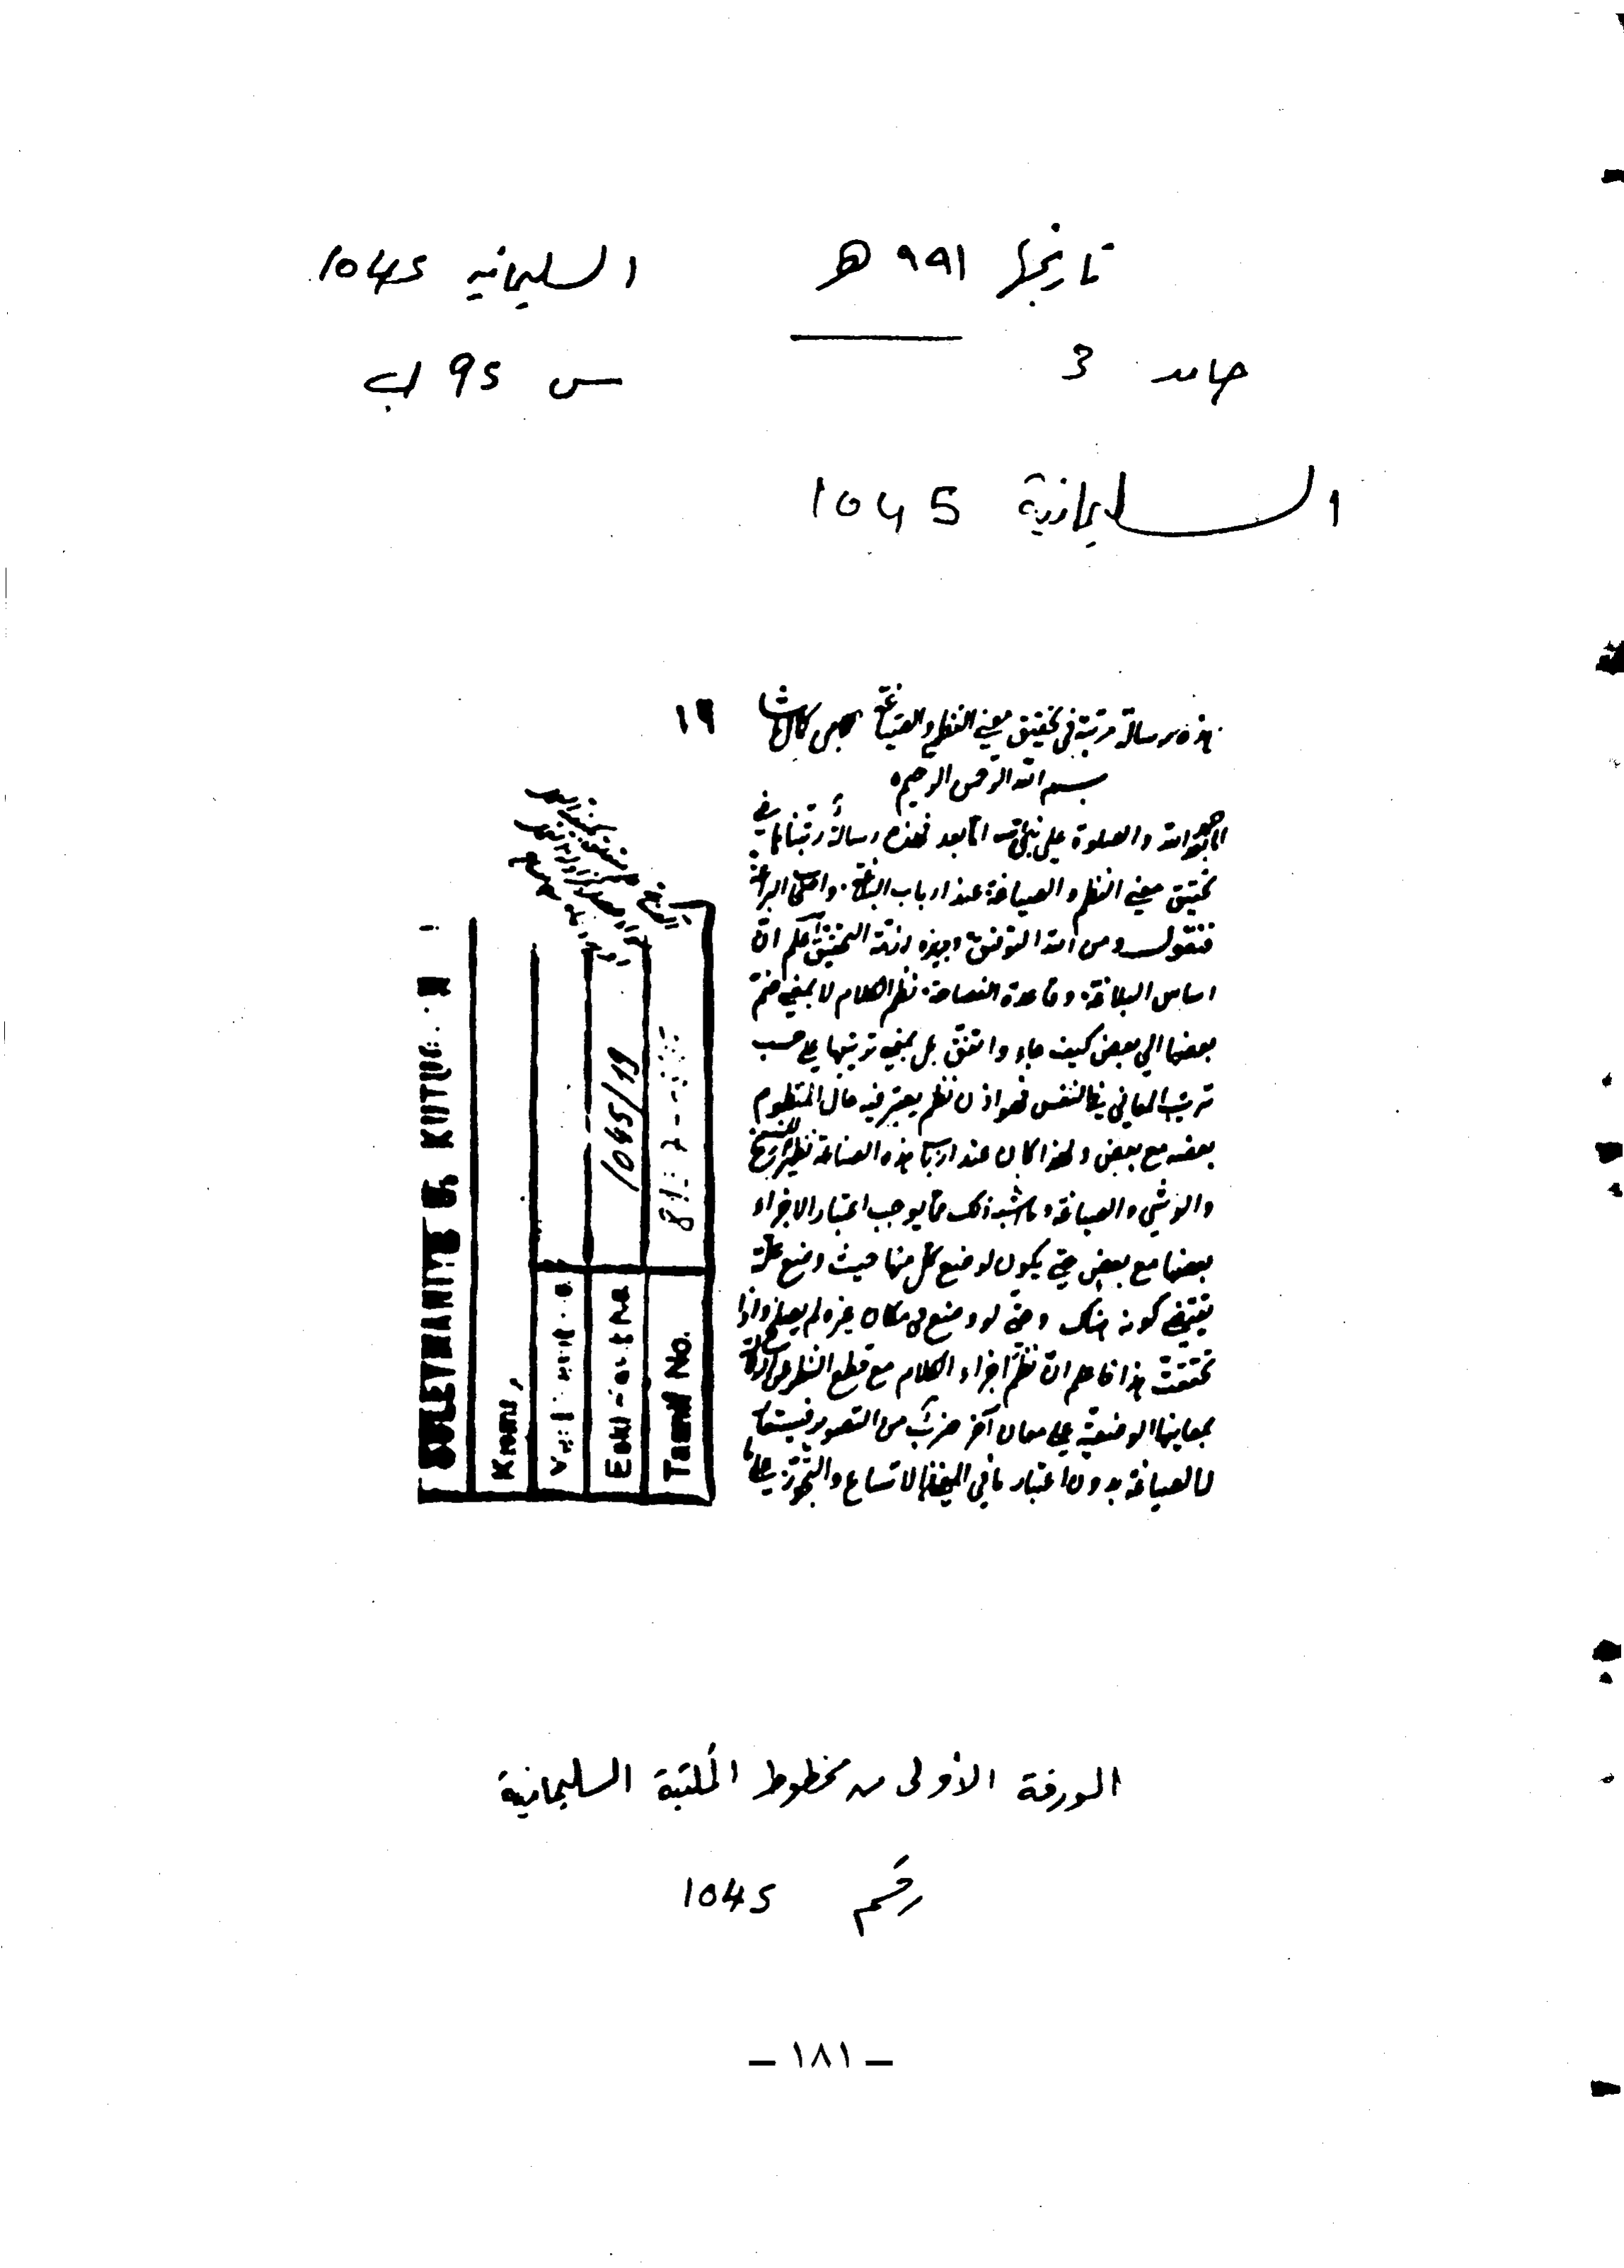 تاريخها ٩٩١ هـ السليمانيه 1045
حامد 3 س 95 ب
السليمانية 1045
هذه رسالة مرتبة في تحقيق معنى النظم والصياغة كمال پاشا ١٩
بسم الله الرحمن الرحيم
الحمد لله والصلوة على نبيه اما بعد فهذه رسالة رتبناها في
تحقيق معنى النظم والصياغة عند ارباب البلاغة واصحاب البراعة
فنقول ومن الله التوفيق وبيده ازمة التحقيق اعلم ان
اساس البلاغة وقاعدة الفصاحة نظم الكلام لا بمعنى ضم
بعضها الى بعض كيف جاء واتفق بل بمعنى ترتيبها على حسب
ترتيب المعاني في النفس فهو اذن نظم يعتبر فيه حال المنظوم
بعضه مع بعض ولهذا كان عند ارباب هذه الصناعة نظير النسج
والوشي والصياغة وما اشبه ذلك مما يوجب اعتبار الاجزاء
بعضها مع بعض حتى يكون لوضع كل منها حيث وضع علة
يقتضي كونه هناك وحتى لو وضع في مكان غيره لم يصلح واذا
تحققت هذا فاعلم ان نظم اجزاء الكلام مع قطع النظر عن
بمعانيها الوضعية على معان آخر ضرب من التصوير
كالصياغة بدون اعتبار ما في الاتساع والتجوز
SULEYMANIYE G. KUTUP
Kısmı
Yeni
Eski 1045/19
Tasnif No.
الورقة الأولى من مخطوط المكتبة السليمانية
رقم 1045
– ١٨١ –